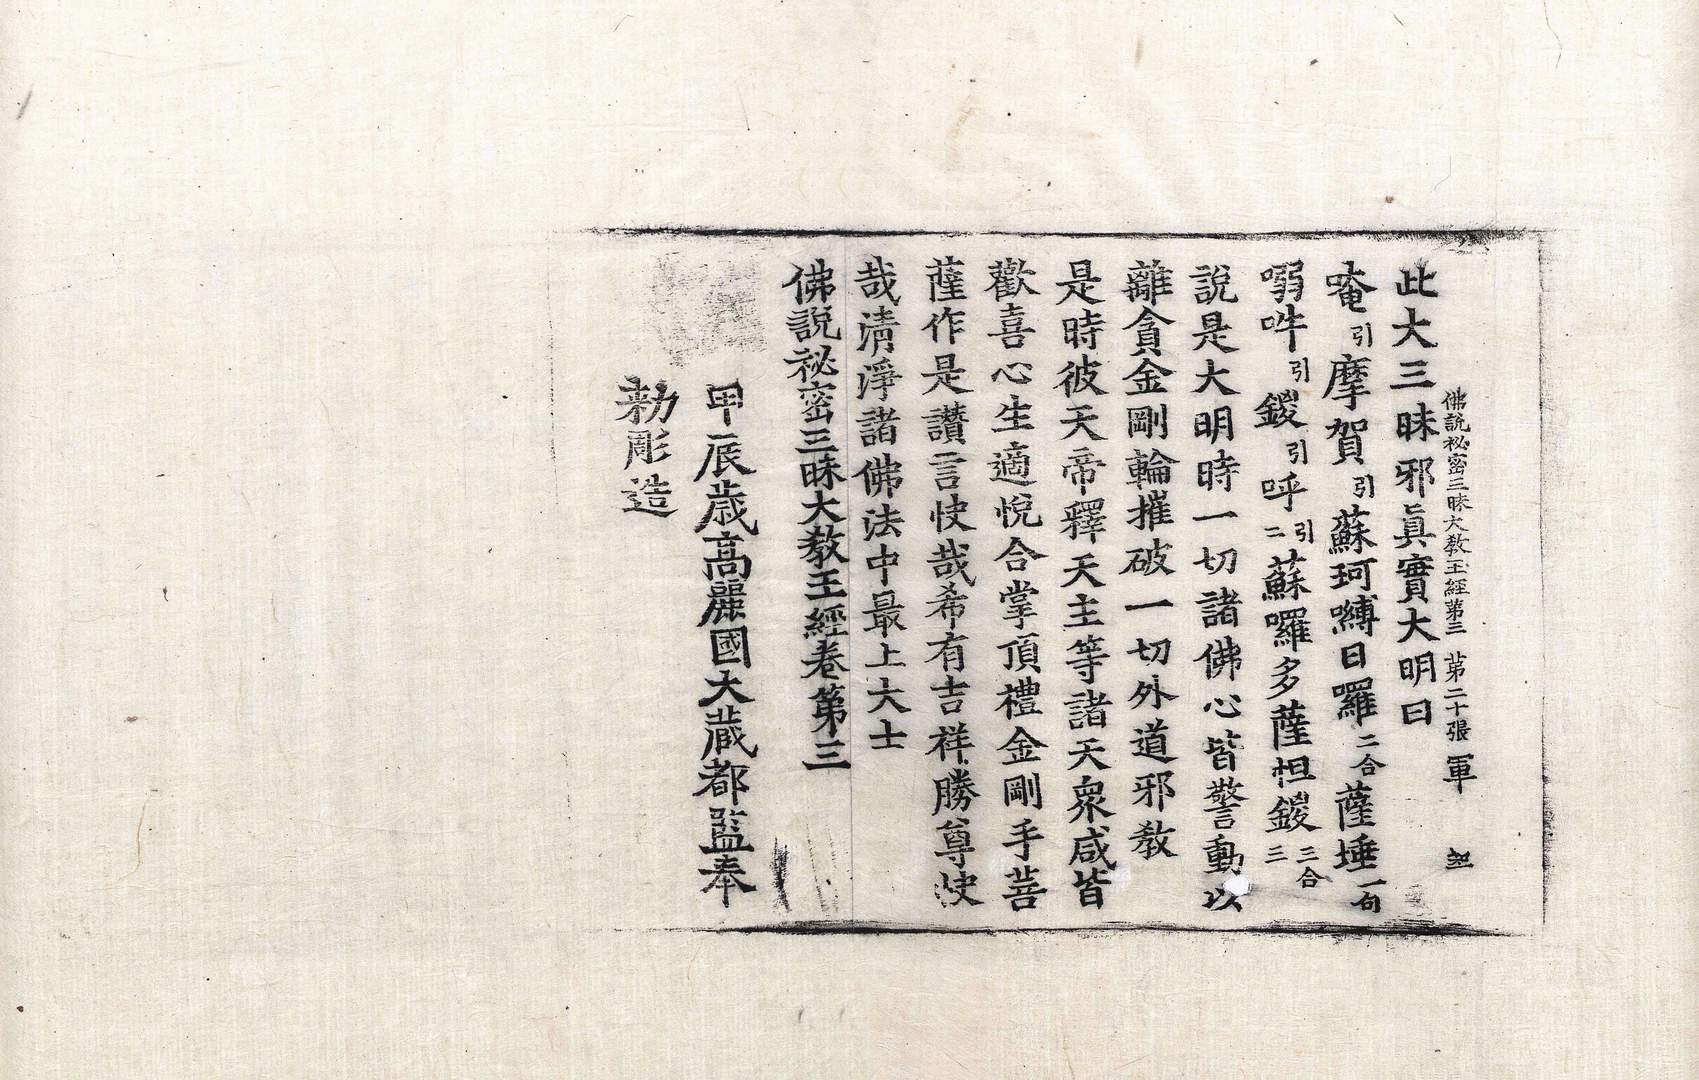 佛說秘密三昧大教王經第三　第二十張　軍
此大三昧邪眞實大明曰
唵引摩賀引蘇珂嚩日囉二合薩埵一句
呬吽引鍐引呼引二蘇囉多薩怛鍐三合三
說是大明時一切諸佛心皆警動以
離貪金剛輪摧破一切外道邪教
是時彼天帝釋天主等諸天衆咸皆
歡喜心生適悅合掌頂禮金剛手菩
薩作是讚言快哉希有吉祥勝尊快
哉清淨諸佛法中最上大士
佛說祕密三昧大教王經卷第三
甲辰歲高麗國大藏都監奉
勑彫造